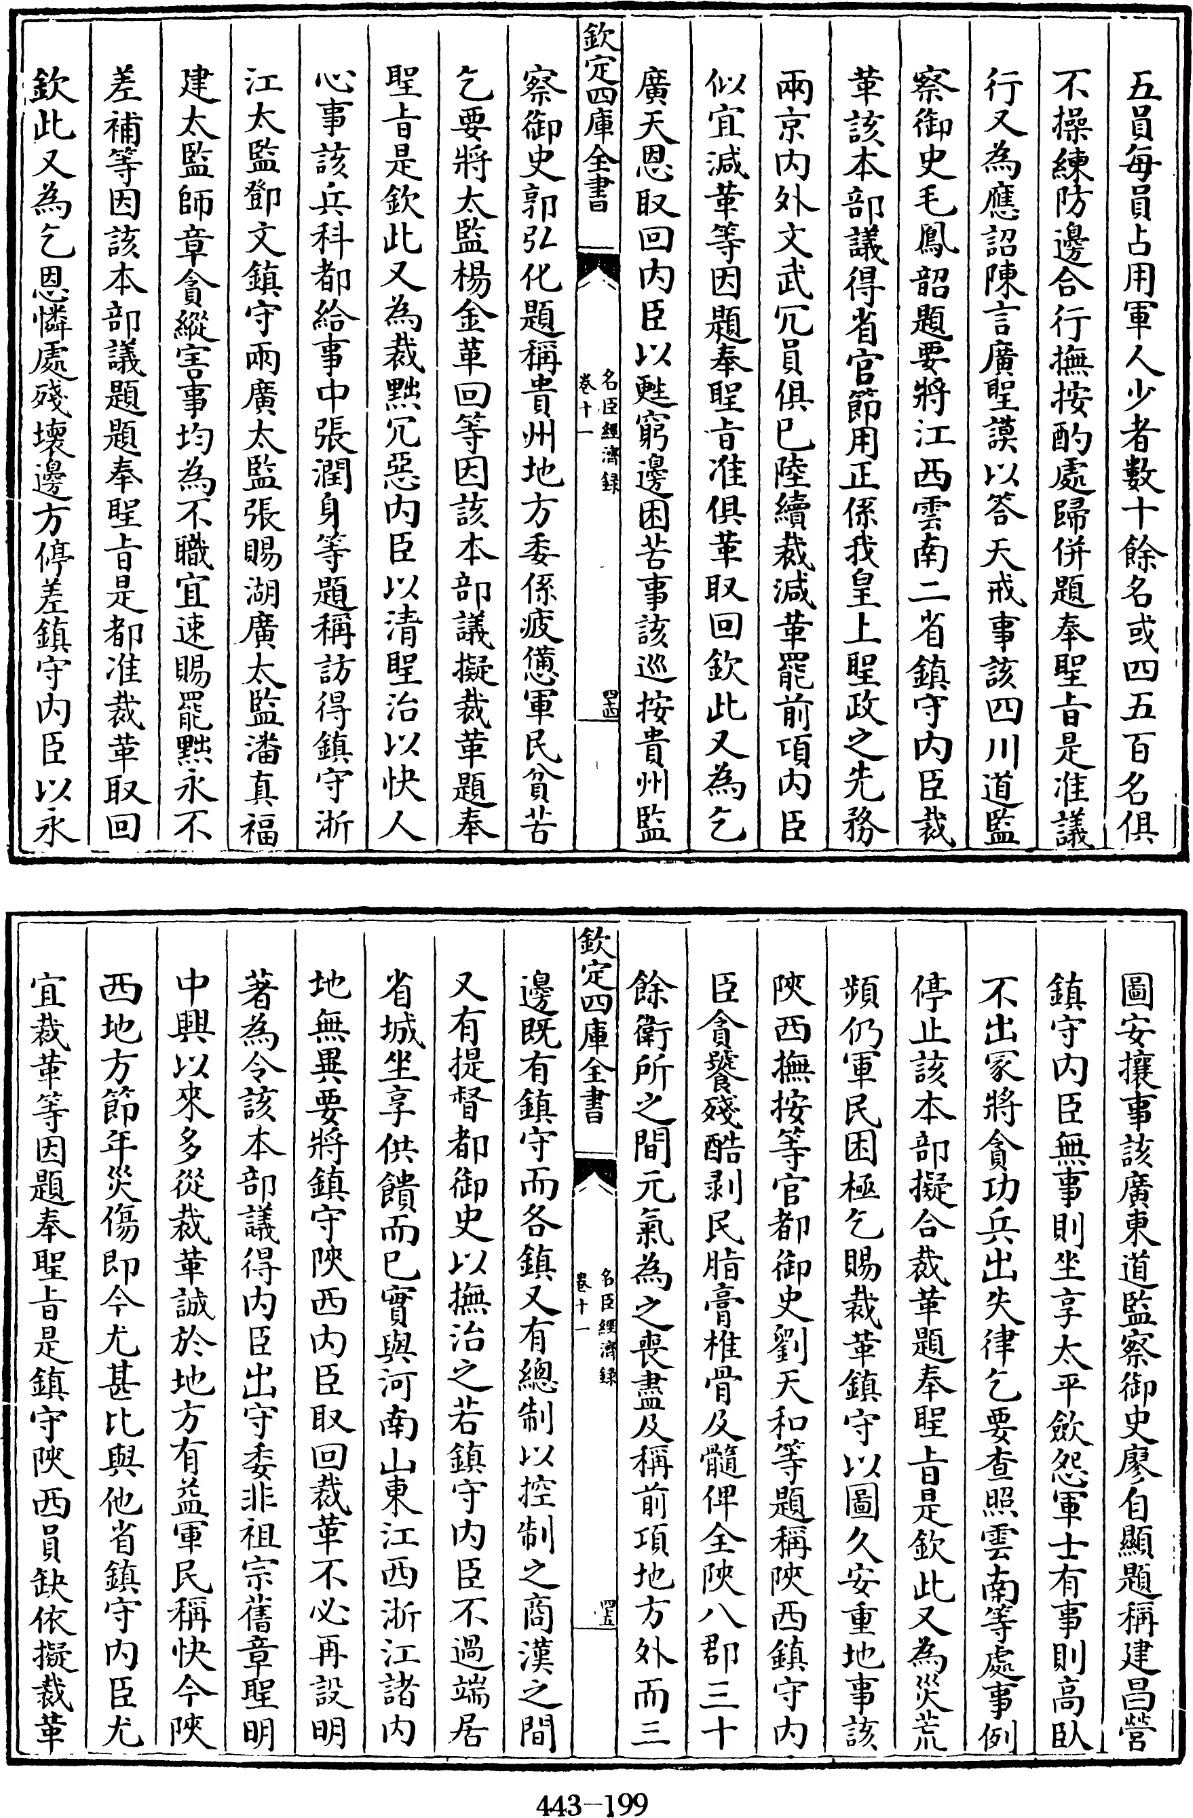 五員每員占用軍人少者數十餘名或四五百名俱
不操練防邊合行撫按酌處歸併題奉聖㫖是准議
行又為應詔陳言廣聖謨以答天戒事該四川道監
察御史毛鳳韶題要將江西雲南二省鎮守内臣裁
革該本部議得省官節用正係我皇上聖政之先務
兩京内外文武冗員俱已陸續裁減革罷前項内臣
似宜減革等因題奉聖㫖准俱革取回欽此又為乞
廣天恩取回内臣以甦窮邊困苦事該巡按貴州監
欽定四庫全書
名臣經濟録
卷十一
四四
察御史郭弘化題稱貴州地方委係疲憊軍民貧苦
乞要將太監楊金革回等因該本部議擬裁革題奉
聖㫖是欽此又為裁黜冗惡内臣以清聖治以快人
心事該兵科都給事中張潤身等題稱訪得鎮守浙
江太監鄧文鎮守兩廣太監張賜湖廣太監潘真福
建太監師章貪縱害事均為不職宜速賜罷黜永不
差補等因該本部議題題奉聖㫖是都准裁革取回
欽此又為乞恩憐處殘壞邊方停差鎮守内臣以永
圖安攘事該廣東道監察御史廖自顯題稱建昌營
鎮守内臣無事則坐享太平斂怨軍士有事則高臥
不出冢將貪功兵出失律乞要查照雲南等處事例
停止該本部擬合裁革題奉聖㫖是欽此又為災荒
頻仍軍民困極乞賜裁革鎮守以圖久安重地事該
陜西撫按等官都御史劉天和等題稱陜西鎮守内
臣貪饕殘酷剥民脂膏椎骨及髓俾全陜八郡三十
餘衛所之間元氣為之喪盡及稱前項地方外而三
欽定四庫全書
名臣經濟録
卷十一
四五
邊既有鎮守而各鎮又有總制以控制之商漢之間
又有提督都御史以撫治之若鎮守内臣不過端居
省城坐享供饋而已實與河南山東江西浙江諸内
地無異要將鎮守陜西内臣取回裁革不必再設明
著為令該本部議得内臣出守委非祖宗舊章聖明
中興以來多從裁革誠於地方有益軍民稱快今陜
西地方節年災傷即今尤甚比與他省鎮守内臣尤
宜裁革等因題奉聖㫖是鎮守陜西員缺依擬裁革
443-199